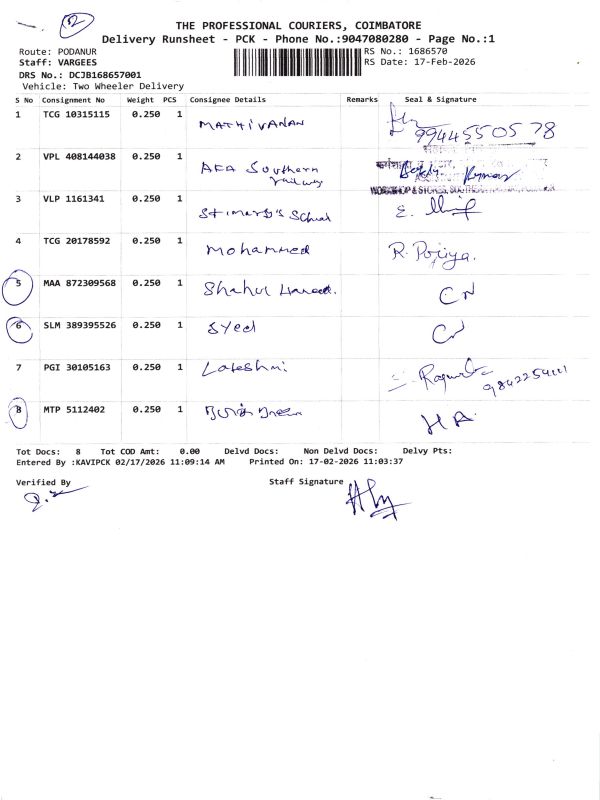 52
THE PROFESSIONAL COURIERS, COIMBATORE
Delivery Runsheet - PCK - Phone No.:9047080280 - Page No.:1
Route: PODANUR RS No.: 1686570
Staff: VARGEES RS Date: 17-Feb-2026
DRS No.: DCJB168657001
Vehicle: Two Wheeler Delivery
S No Consignment No Weight PCS Consignee Details Remarks Seal & Signature
1 TCG 10315115 0.250 1 MATHIVANAN 9944550578
2 VPL 408144038 0.250 1 AFA Southern railway Kumar
WORKSHOP & STORES, SOUTHERN
3 VLP 1161341 0.250 1 St mary's School E.
4 TCG 20178592 0.250 1 Mohammed R. Pojiya.
5 MAA 872309568 0.250 1 Shahul Hameed. CN
6 SLM 389395526 0.250 1 Syed CN
7 PGI 30105163 0.250 1 Lakeshmi 9842254111
8 MTP 5112402 0.250 1 HA
Tot Docs: 8 Tot COD Amt: 0.00 Delvd Docs: Non Delvd Docs: Delvy Pts:
Entered By :KAVIPCK 02/17/2026 11:09:14 AM Printed On: 17-02-2026 11:03:37
Verified By Staff Signature